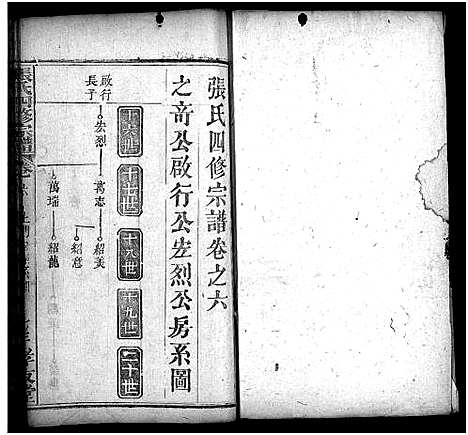 張氏四修宗譜卷之六
之奇公啟行公宏烈公房系圖
十六世
十七世
十八世
十九世
二十世
啟行
長子
宏烈
萬志
紹美
紹意
萬瑞
紹龍
張氏四修宗譜